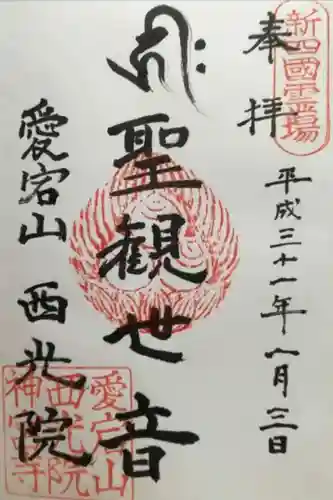 新四國霊場
奉拝
平成三十一年一月三日
聖観世音
愛宕山 西光院
愛宕山
西光院
神宮寺